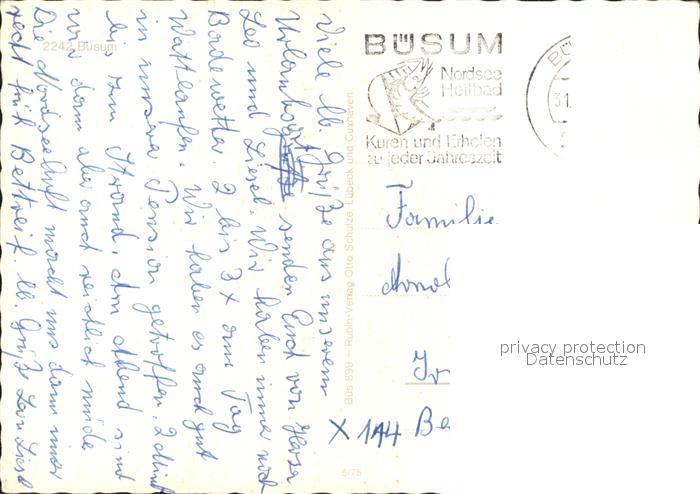 Viele lb. Grüße aus unserem
Urlaubsort senden Euch von Herzen
Leo und Liesel. Wir haben immer noch
Badewetter. 2 bis 3x am Tag
Wattlaufen. Wir haben es auch gut
in unserer Pension getroffen. 2 Min
bis zum Strand. Am Abend sind
wir dann aber auch reichlich müde
Die Nordseeluft macht uns dann immer
recht früh Bettreif. lb. Grüße Leo Liesel
2242 Büsum
Büs 899 – Rubin-Verlag Otto Schulze, Lübeck und Cuxhaven
5/75
BÜSUM
Nordsee
Heilbad
Kuren und Erholen
zu jeder Jahreszeit
BÜ
31.
Familie
Arnol
X 144 Be
privacy protection
Datenschutz